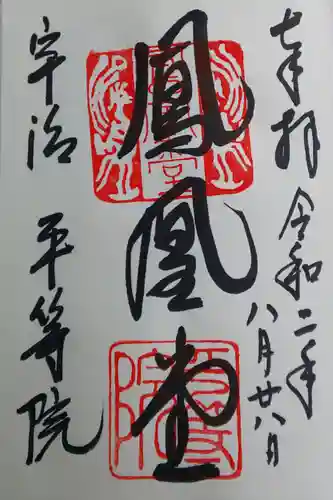 七年拝 令和二年
八月廿八日
鳳凰堂
宇治 平等院